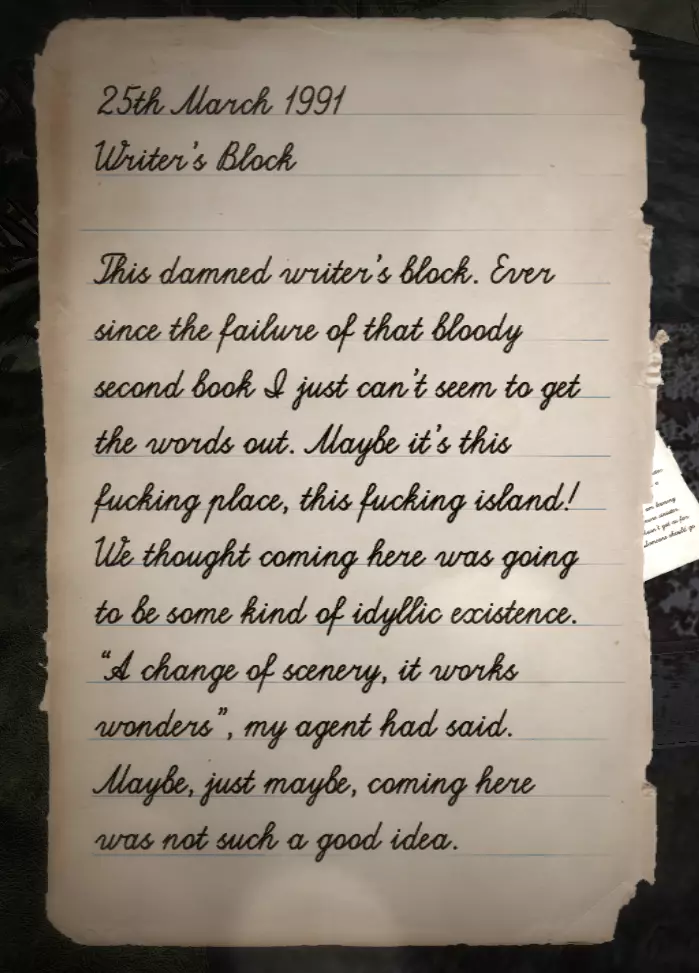 25th March 1991
Writer's Block
This damned writer's block. Ever
since the failure of that bloody
second book I just can't seem to get
the words out. Maybe it's this
fucking place, this fucking island!
We thought coming here was going
to be some kind of idyllic existence.
"A change of scenery, it works
wonders", my agent had said.
Maybe, just maybe, coming here
was not such a good idea.